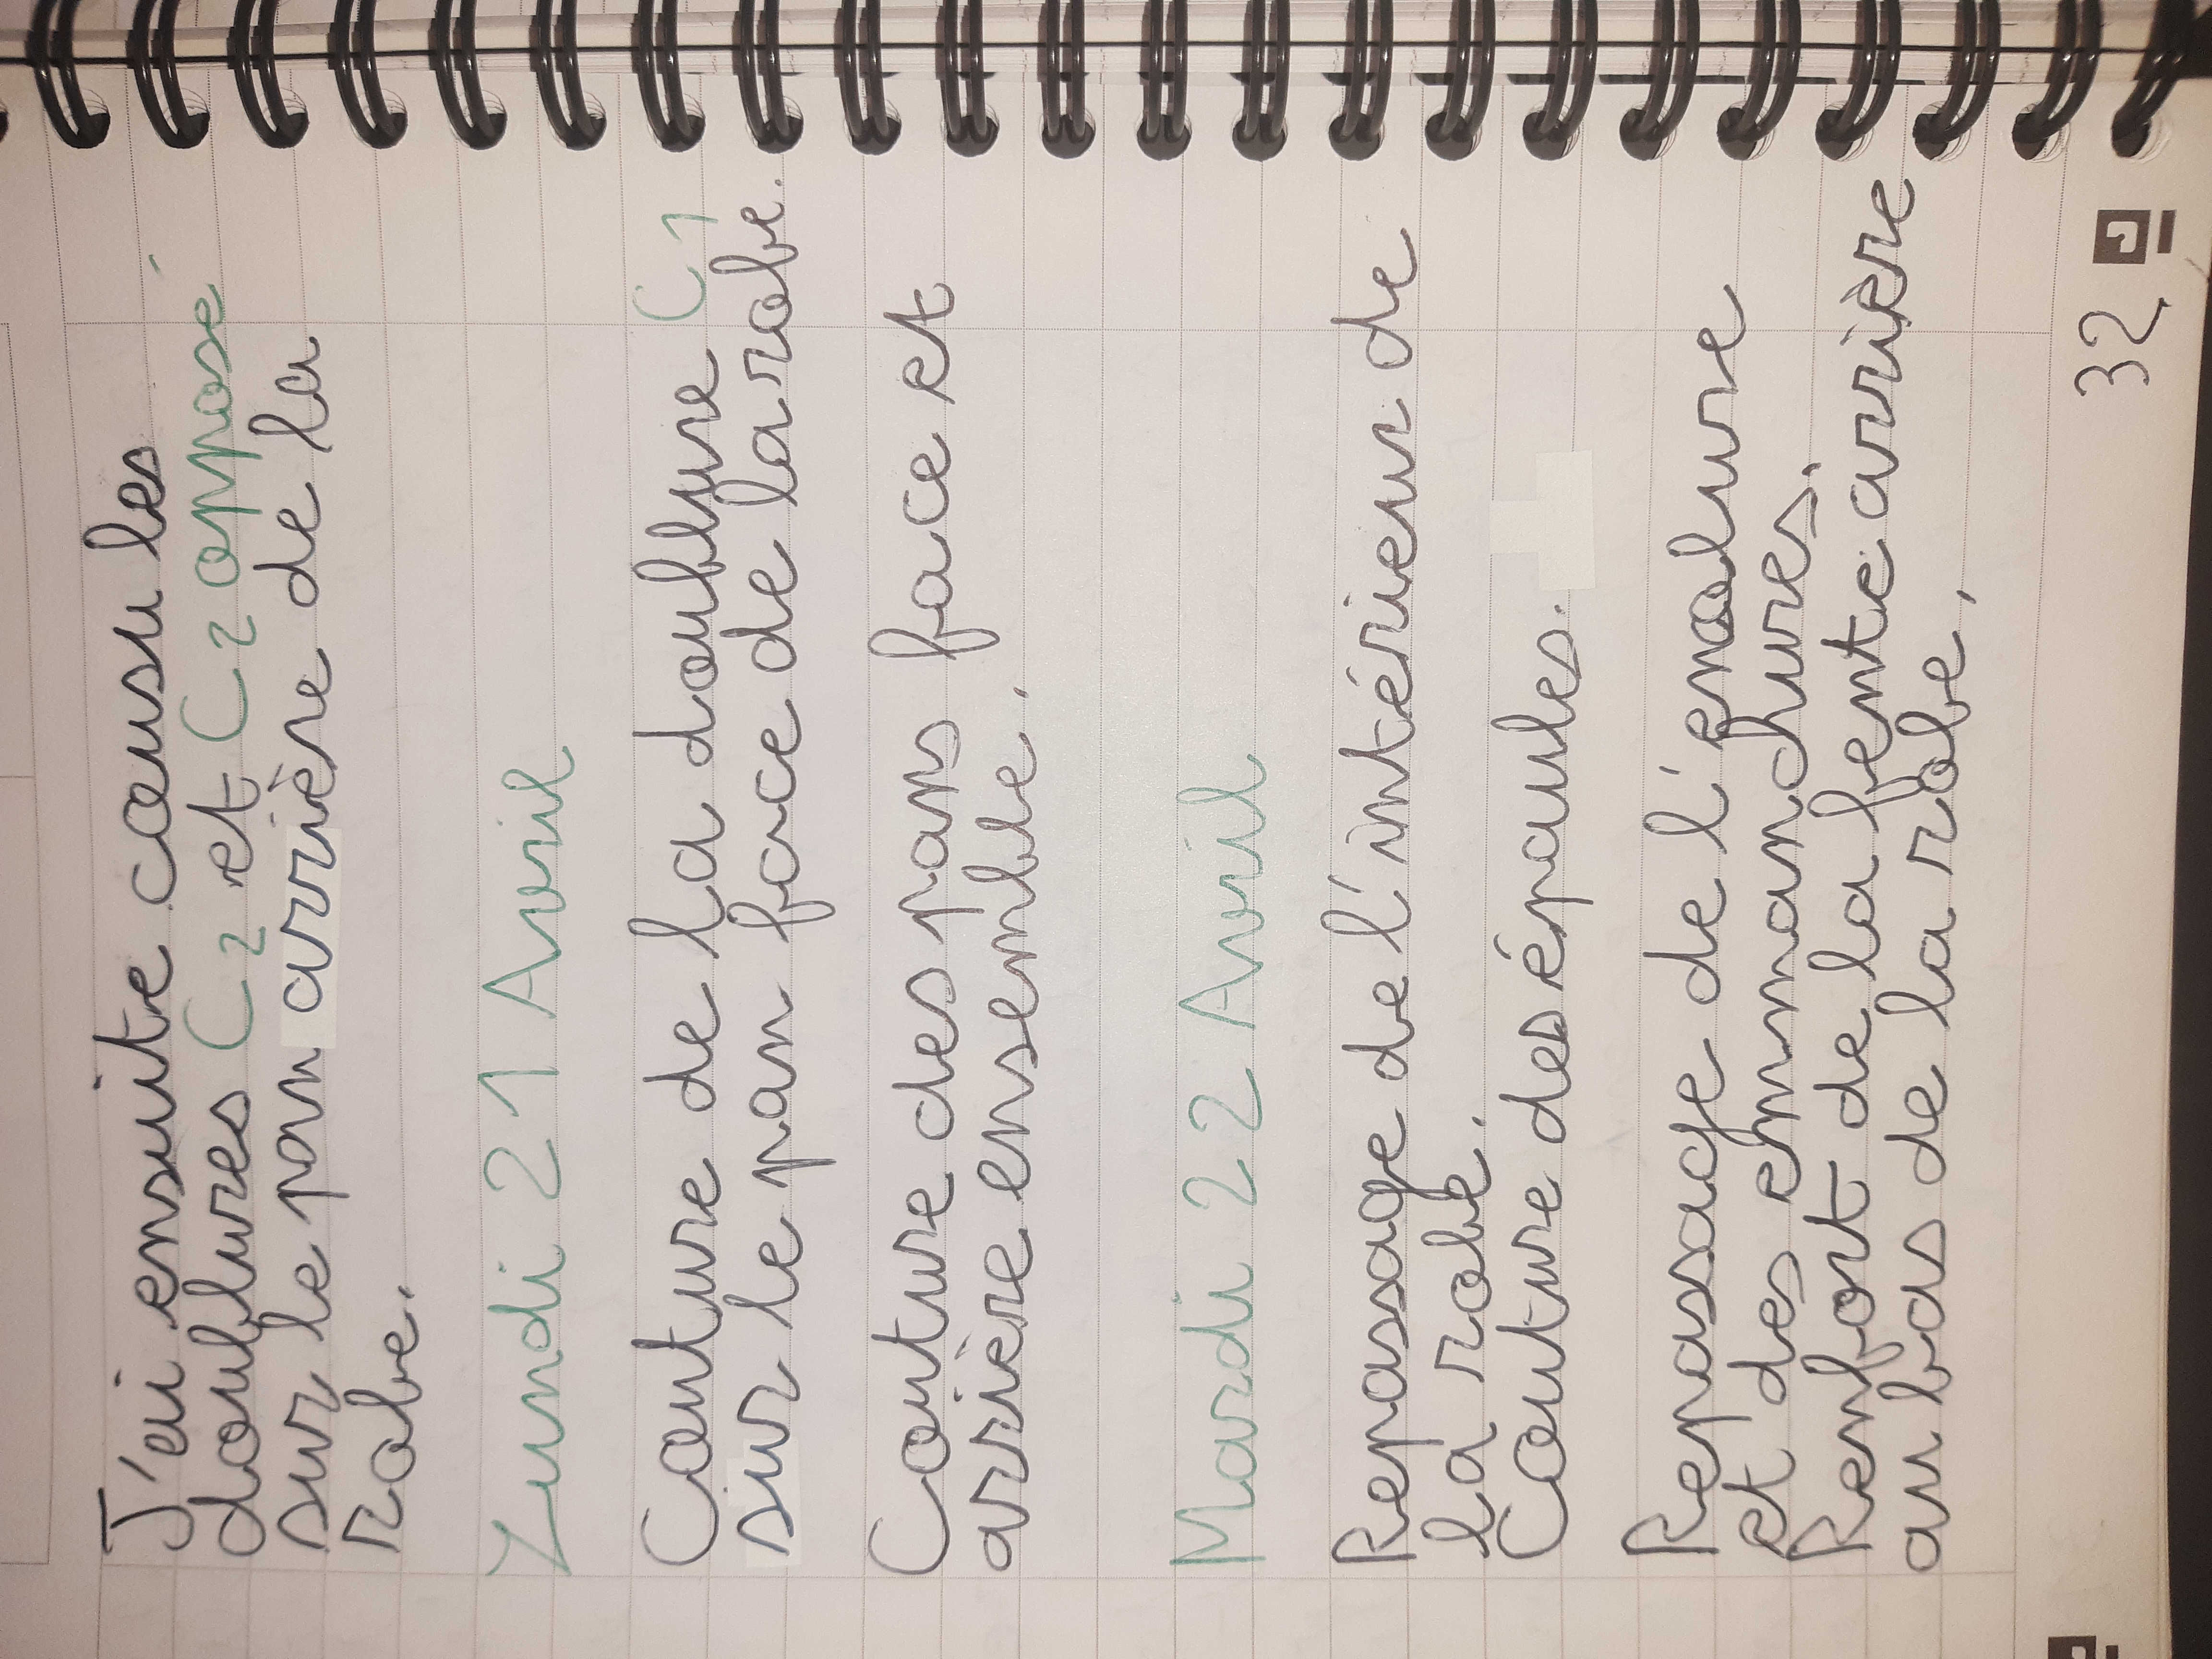 J'ai ensuite cousu les
doublures C2 et C2 opposé
sur le pan arrière de la
robe.
Lundi 21 Avril
Couture de la doublure C1
sur le pan face de la robe.
Couture des pans face et
arrière ensemble.
Mardi 22 Avril
Repassage de l'intérieur de
la robe.
Couture des épaules.
Repassage de l'enolure
et des emmanchures.
Renfort de la fente arrière
au bas de la robe.
32